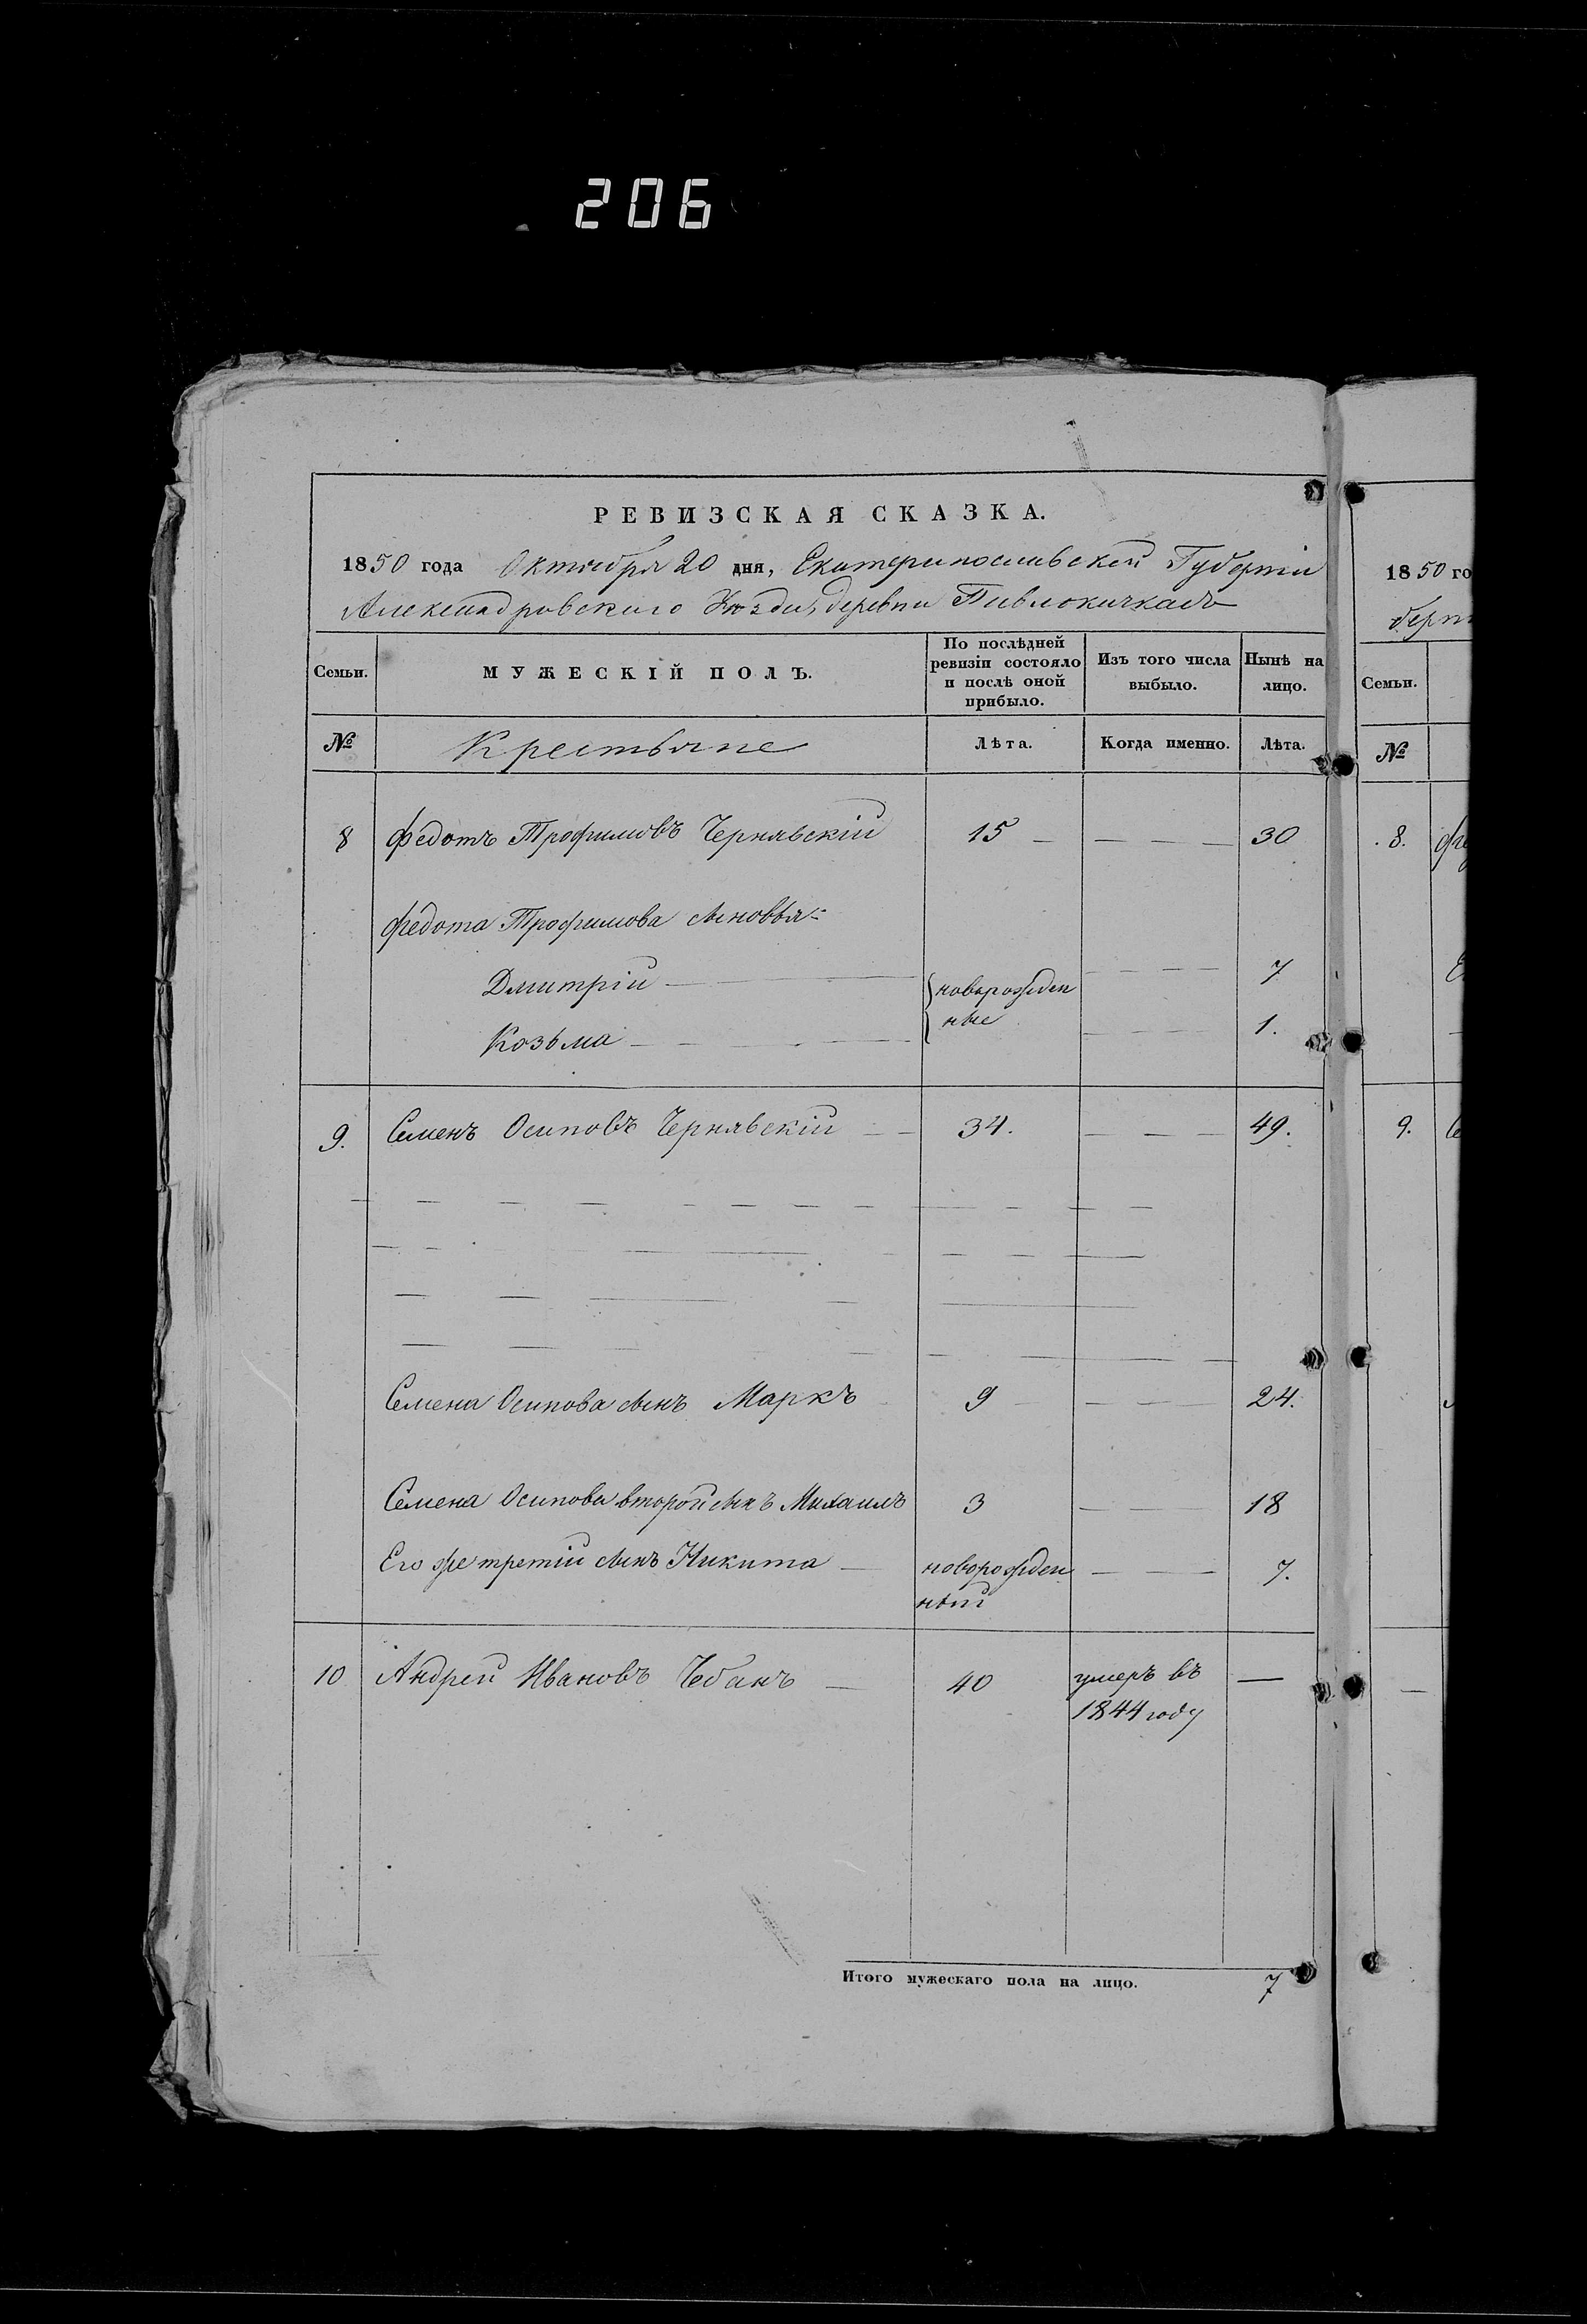 206
РЕВИЗСКАЯ СКАЗКА.
1850 года Октября 20 дня, Екатеринославской Губерніи
Александровскаго Уѣзда, деревни Павлокичкасъ
Семьи. МУЖЕСКІЙ ПОЛЪ. По послѣдней ревизіи состояло и послѣ оной прибыло. Изъ того числа выбыло. Нынѣ на лицо.
№ Крестьяне Лѣта. Когда именно. Лѣта.
8 Федотъ Трофимовъ Чернявскій 15 — — — — 30
Федота Трофимова сыновья:
Дмитрій — новорожден — — — — 7
Козьма — ные — — — — 1.
9. Семенъ Осиповъ Чернявскій — — 34. — — — 49.
Семена Осипова сынъ Маркъ 9 — — — 24.
Семена Осипова второй сынъ Михаилъ 3 — — 18
Его же третій сынъ Никита — новорожден — — 7.
ный
10 Андрей Ивановъ Чебанъ — 40 умеръ въ —
1844 году
Итого мужескаго пола на лицо. 7
1850 го
берн
Семьи.
№
8.
9.